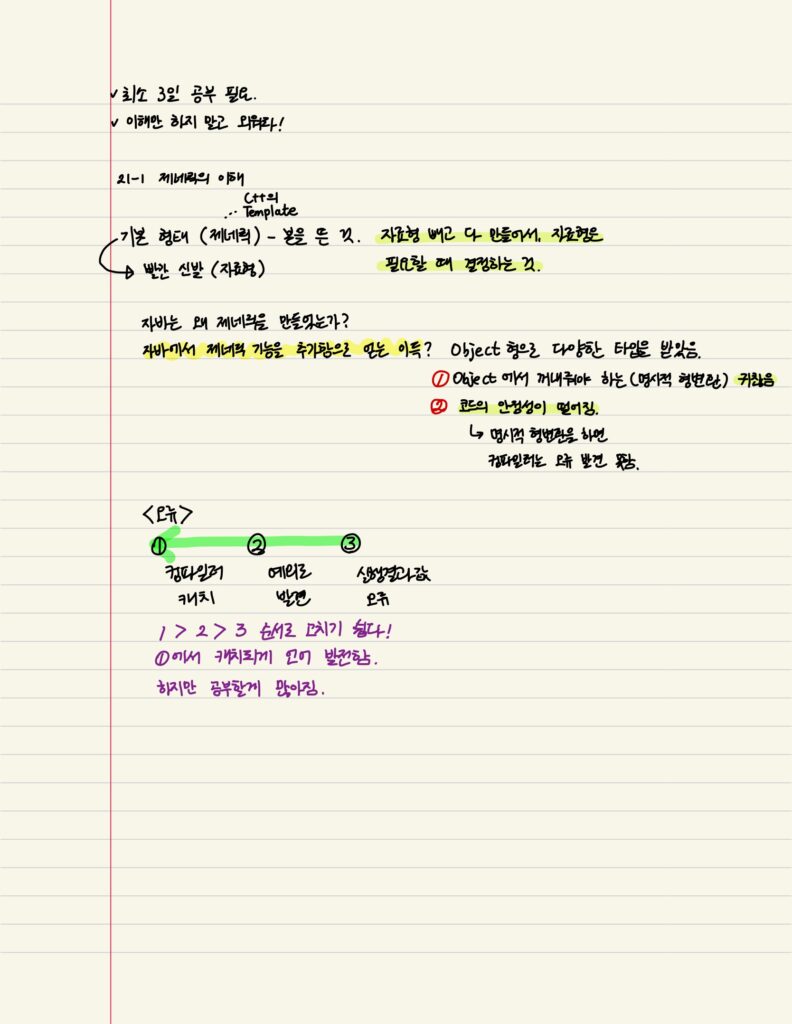 ✓ 최소 3일 공부 필요.
✓ 이해만 하지 말고 외워라!
21-1 제네릭의 이해
C++의
... Template
기본 형태 (제네릭) - 본을 뜬 것. 자료형 빼고 다 만들어서, 자료형은
빨간 신발 (자료형) 필요할 때 결정하는 것.
자바는 왜 제네릭을 만들었는가?
자바에서 제네릭 기능을 추가함으로 얻는 이득? Object 형으로 다양한 타입을 받았음.
① Object 에서 꺼내줘야 하는 (명시적 형변환) 귀찮음
② 코드의 안정성이 떨어짐.
↳ 명시적 형변환을 하면
컴파일러는 오류 발견 못함.
<오류>
① ② ③
컴파일러 예외로 실행결과값
캐치 발견 오류
1 > 2 > 3 순서로 고치기 쉽다!
①에서 캐치되게 언어 발전함.
하지만 공부할게 많아짐.